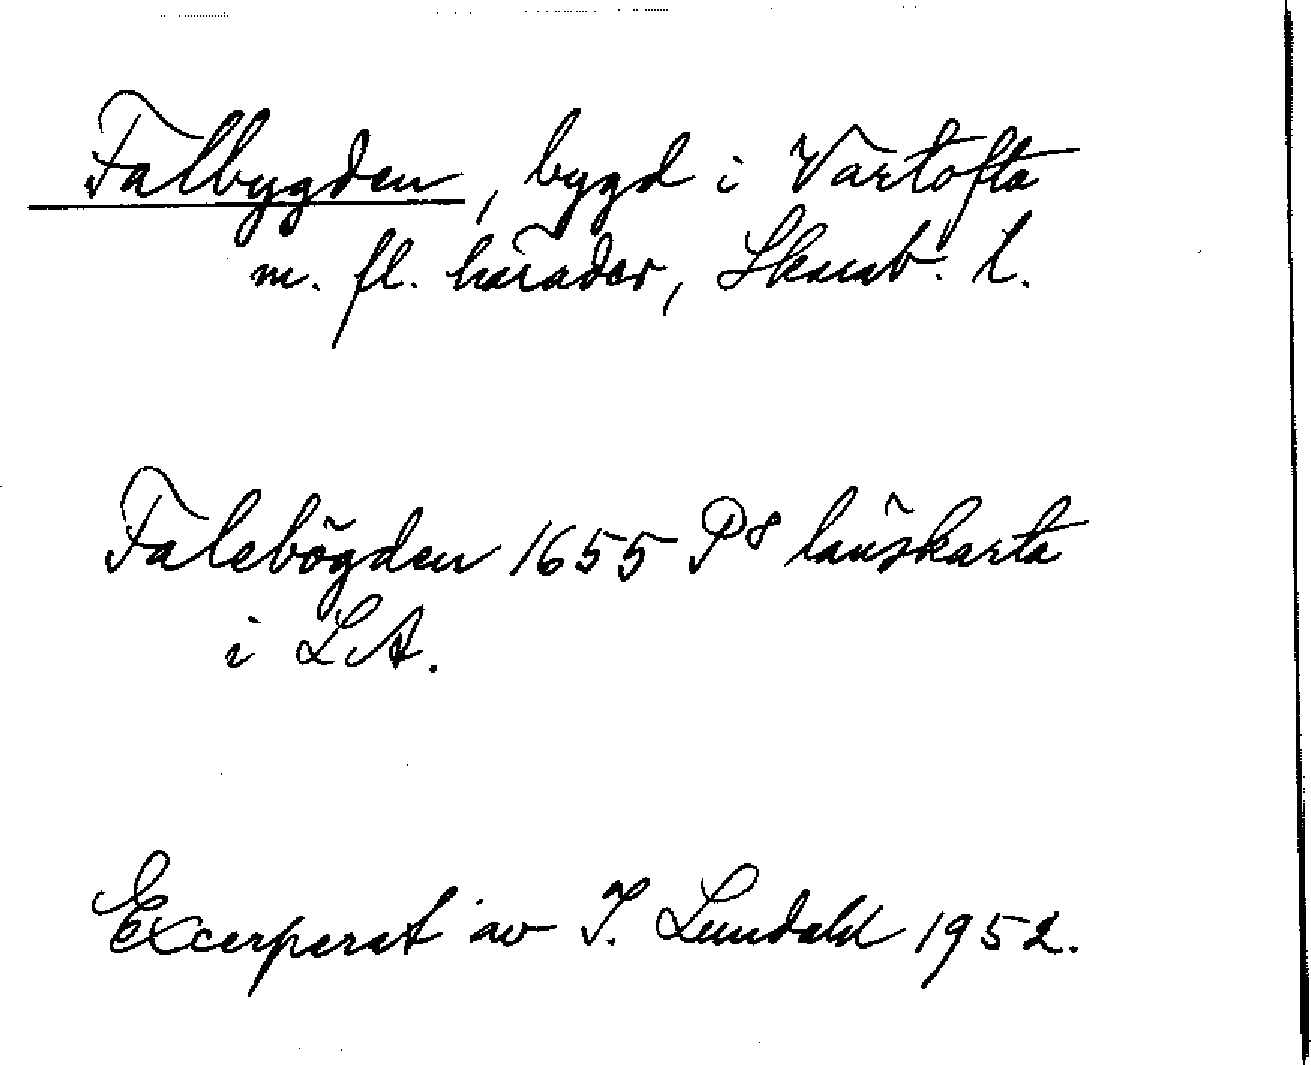 Falbygden, bygd i Vartofta
m. fl. härader, Skarab. l.
Falebögden 1655 P8 länskarta
i LA.
Excerperat av I. Lundahl 1952.